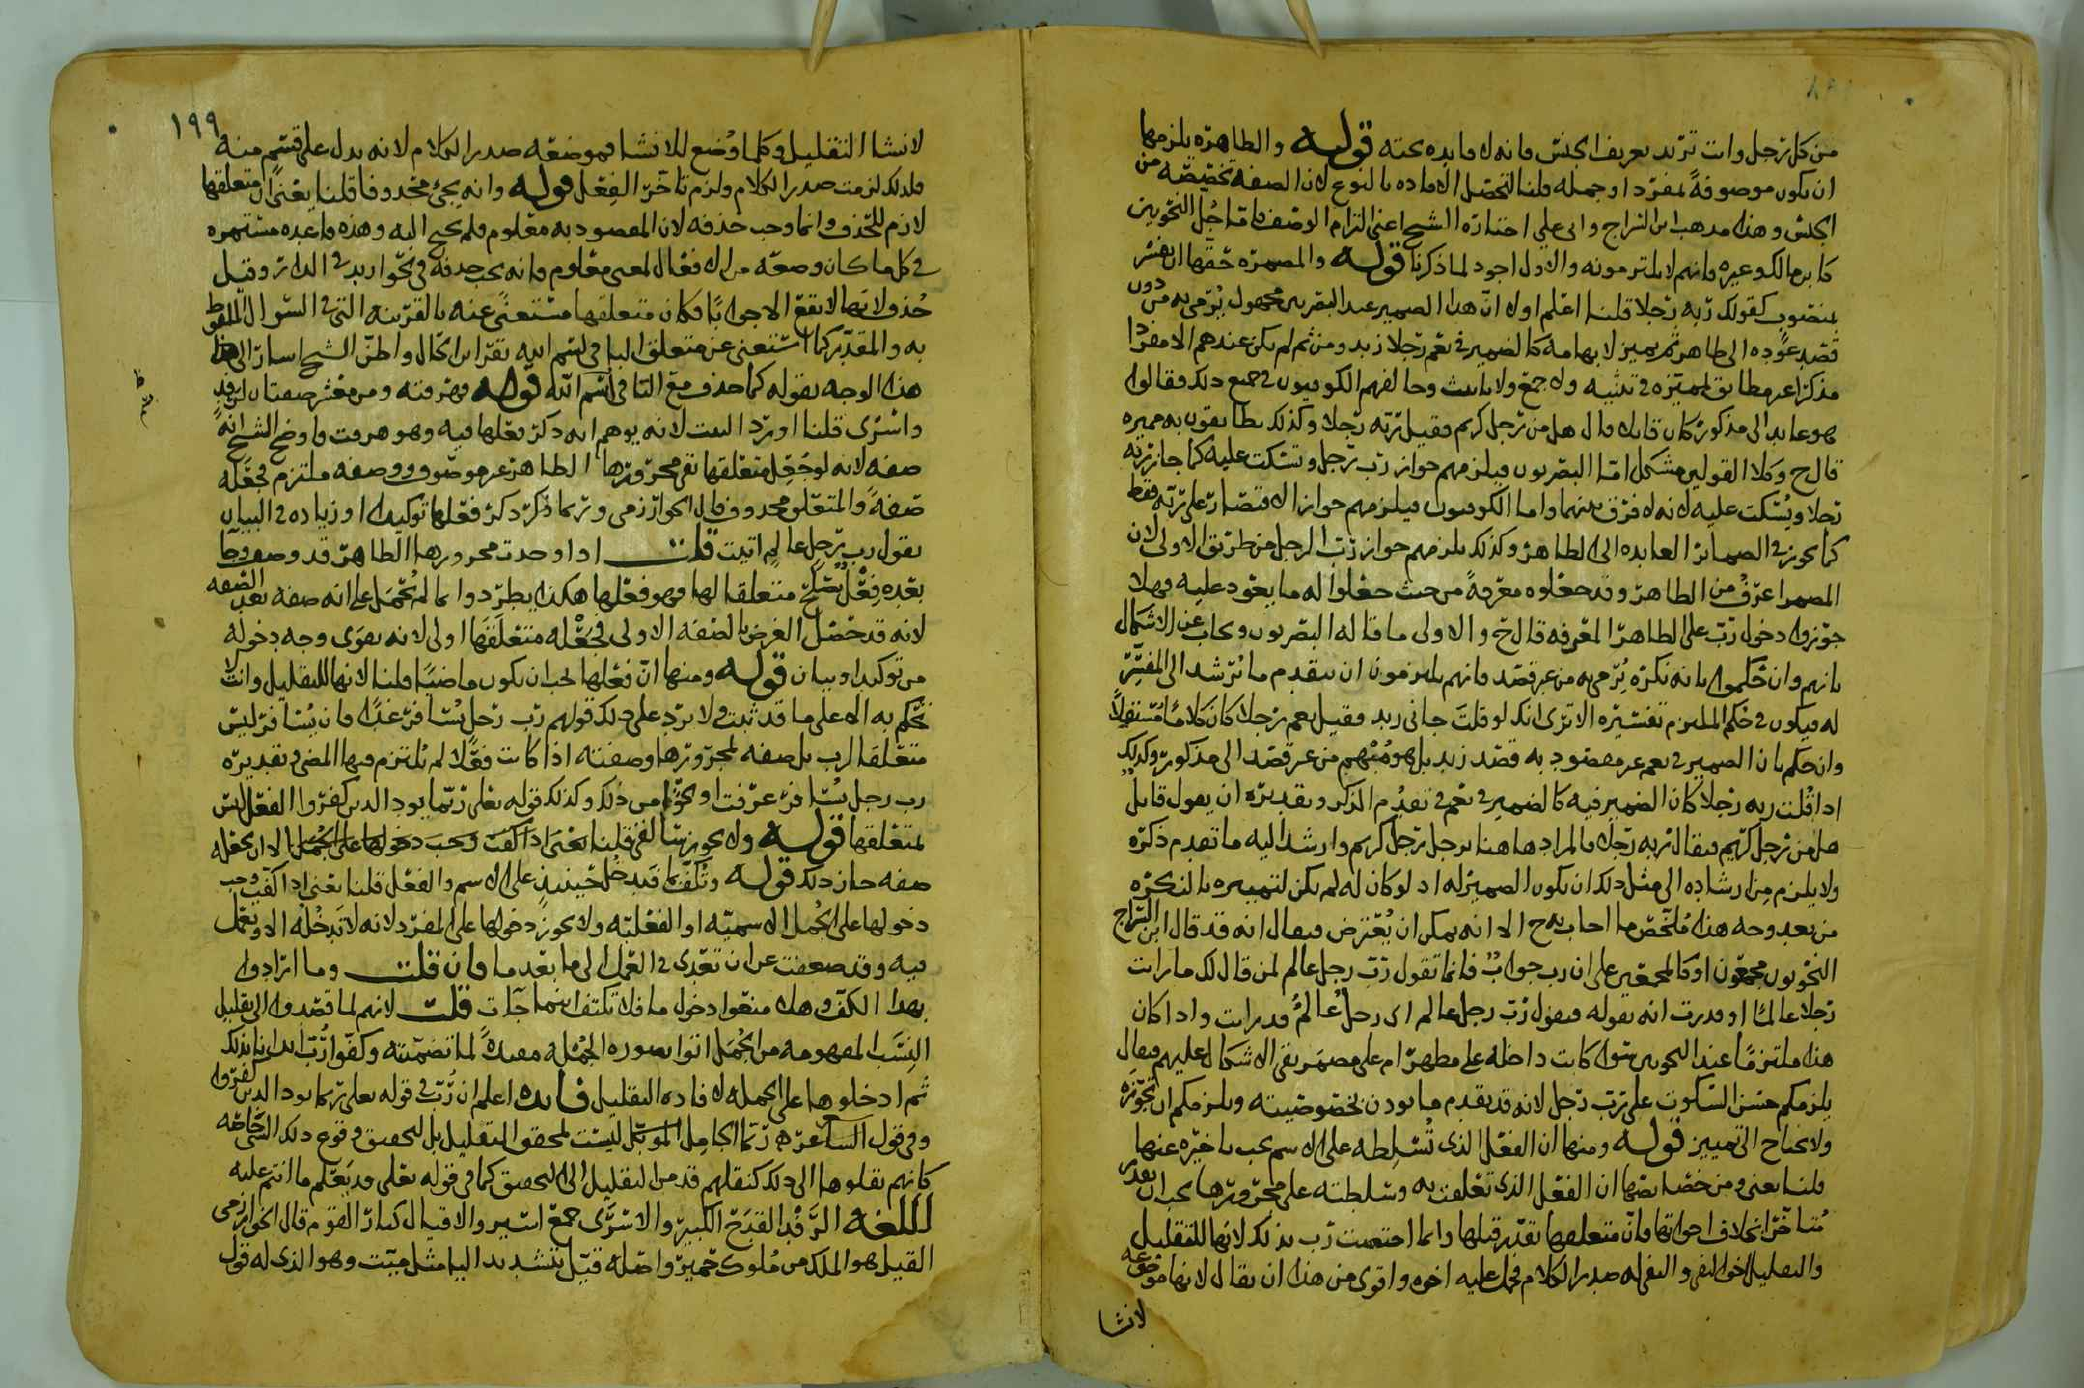 من كل رجل وانت تريد تعريف الجنس فانه لا فايده تحته قوله والظاهرة يلزمها
ان يكون موصوفةً بمفرد او جمله قلنا لتحصل الافاده بالنوع لان الصفه تخصيصه من
الجنس وهذا مذهب ابن السراج وابي علي اختاره الشيخ اعني التزام الوصف فاما جُل النحويين
كابن مالك وغيره فانهم لا يلتزمونه والاول اجود لما ذكرنا قوله والمضمرة حقها ان يفسر
بمنصوب كقولك ربه رجلا قلنا اعلم اولا انّ هذا الضمير عند البصريين مجهول يُرمى به من دون
قصد عوده الى ظاهر ثم يميز لابهامه كالضمير في نعم رجلا زيد ومن ثم لم يكن عندهم الا مفردا
مذكرا غير مطابق لمميزه في تثنيه ولا جمع ولا تانيث وخالفهم الكوفيون في جميع ذلك فقالوا
هو عايد الى مذكور كان قايلا قال هل من رجل كريم فقيل ربه رجلا وكذلك يطابقون به مميزه
قال ح وكلا القولين مشكل امّا البصريون فيلزمهم جواز رب رجل وتسكت عليه كما جاز ربه
رجلا ويُسكت عليه لانه لا فرق بينهما واما الكوفيون فيلزمهم جواز الاقتصار على ربه فقط
كما يجوز في الضمائر العايده الى الظاهر وكذلك يلزمهم جواز رب الرجل من طريق الاولى لان
المضمر اعرف من الظاهر وقد جعلوه معرفةً من حيث جعلوا له ما يعود عليه فهلا
جوزوا دخول رب على الظاهر المعرفه قال ح والاولى ما قاله البصريون ويجاب عن الاشكال
بانهم وان حكموا بانه نكره يُرمى به من غير قصد فانهم يلتزمون ان يتقدم ما يُرشد الى المفسّر
له فيكون في حكم الملتزم تفسيره الا ترى انك لو قلت جاني زيد فقيل نعم رجلا كان كلامًا مستقلاً
وان حكم بان الضمير في نعم غير مقصود به قصد زيد بل هو مُبهم من غير قصد الى مذكور وكذلك
اذا قُلت ربه رجلا كان الضمير فيه كالضمير في نعم في تقدُم الذكر وتقديره ان يقول قايل
هل من رجل كريم فيقال ربه رجلا فالمراد هاهنا برجل رجل كريم وارشد اليه ما تقدم ذكره
ولا يلزم مِن ارشاده الى مثل ذلك ان يكون الضمير له اذ لو كان له لم يكن لتمييزه بالنكره
من بعد وجه هذا مُلخّص ما اجاب به ح الا انه يمكن ان يُعترض فيقال انه قد قال ابن السراج
النحويون مجمعون او كالمجمعين على ان رب جوابٌ فانما تقول رب رجل عالم لمن قال لك ما رايت
رجلا عالمًا او قدرت انه يقوله فيقول رُبّ رجل عالم اي رجل عالمٌ قد رايت واذا كان
هذا ملتزمًا عند النحويين سوا كانت داخله على مظهر ام على مضمر بقى الاشكال عليهم فيقال
يلزمكم حسن السكوت على رب رجل لانه قد تقدم ما يوذن بخصوصيته ويلزمكم ان تجوزه
ولا يحتاج الى تمييز قوله ومنها ان الفعل الذي تُسلطه على الاسم يجب تاخيره عنها
قلنا يعني ومن خصايصها ان الفعل الذي تعلقت به وسلطته على مجرورها يجب ان يقدر
مُتاخرا بخلاف اخواتها فانّ متعلقها يقدّر قبلها وانما اختصت رُب بذلك لانها للتقليل
والتقليل اخو النفي والنفي له صدر الكلام فحمل عليه اخوه واقوى من هذا ان يقال لانها موضوعه
لانشا
١٩٩
لانشا التقليل وكلما وُضع للانشا فموضعه صدر الكلام لانه يدل على قسم منه
فلذلك لزمت صدر الكلام ولزم تاخر الفِعل قوله وانه يجئ محذوفا قلنا يعني ان متعلقها
لازم للحذف وانما وجب حذفه لان المقصود به معلوم فلم يحتج اليه وهذه قاعده مستمره
في كل ما كان وصفه من الافعال المعنى معلوم فانه يجب حذفه في نحو اريد في الدار وقيل
حُذف لانها لا تقع الا جوابًا فكان متعلقها مستغنىً عنه بالقرينه التي في السوال الملفوظ
به والمقدّر كما استغنى عن متعلق البا في بسم الله تقرا بن الحال واظنّ الشيخ اشار الى هذا
هذا الوجه بقوله كما حذف مع البا في بسم الله قوله فهرقته ومن معشر صفتان لرفد
واسرى قلنا اورد البيت لانه يوهم انه ذكر فعلها فيه وهو هرقت فاوضح الشيخ انه
صفه لانه لو جُعل متعلقها بقى مجرورها الظاهر غير موصوف ووصفه ملتزم فجعله
صفةً والمتعلق محذوف قال الخوارزمي وربما ذُكر ذكر فعلها توكيدا او زياده في البيان
تقول رب رجل عالم اتيت قلت اذا وجدت مجرورها الظاهر قد وصف وجا
بعده فِعْل يصلح متعلقا لها فهو فعلها هكذا يطرد وانما لم يُحمل على انه صفه بعد الصفه
لانه قد حصل الغرض بالصفه الاولى فجَعْله متعلقها اولى لانه يقوى وجه دخوله
من توكيد او بيان قوله ومنها انّ فعلها يجب ان يكون ماضيًا قلنا لانها للتقليل وانت لا
تحكم به الا على ما قد ثبت ولا يرد على ذلك قولهم رب رجل يُسافر غدًا فان يُسافر ليس
متعلقا لرب بل صفه لمجرورها وصفته اذا كانت فعلًا لم يُلتزم فيها المضي وتقديره
رب رجل يُسافر عرفت او نحوًا من ذلك وكذلك قوله تعلى ربّما يود الذين كفروا الفعل ليس
لمتعلقها قوله ولا يجوز سالفى قلنا يعني اذا كفت وجب دخولها على الجمل الا ان يجعله
صفه جاز ذلك قوله وتُكَفّ بما فتدخل حينيذٍ على الاسم والفعل قلنا يعني اذا كفت وجب
دخولها على الجمل الاسميّه او الفعليّه ولا يجوز دخولها على المفرد لانه لا تدخله الا وتعمل
فيه وقد ضعفت عن ان تتعدى في العمل الى ما بعد ما فان قلت وما ارادوا
بهذا الكف وهلا منعوا دخول ما فلا تكتف اينما جآت قلت لانهم لما قصدوا الى تقليل
النِسَب المفهومه من الجُمل اتوا بصوره الجُمْله مفيدةً لما تضمنته وكفّوا رُبّ ايذانا بذلك
ثم ادخلوها على الجمله لافاده التقليل فايده اعلم ان رُبّ في قوله تعلى ربما يود الذين كفروا
وفي قول الشاعر ه ربّما الجامِل الموبّل ليست لمحقق التقليل بل لتحقيق وقوع ذلك الشي خاصّه
كانهم نقلوها الى ذلك كنقلهم قد من التقليل الى التحقيق كما في قوله تعلى قد يَعلم ما انتم عليه
اللغه الرَّفْد القَدَح الكبير والاسرَى جمع اسير والاقيال كبار القوم قال الخوارزمي
القيل هو الملك من مُلوك حمير واصله قيّل بتشديد اليا مثل ميّت وهو الذي له قول